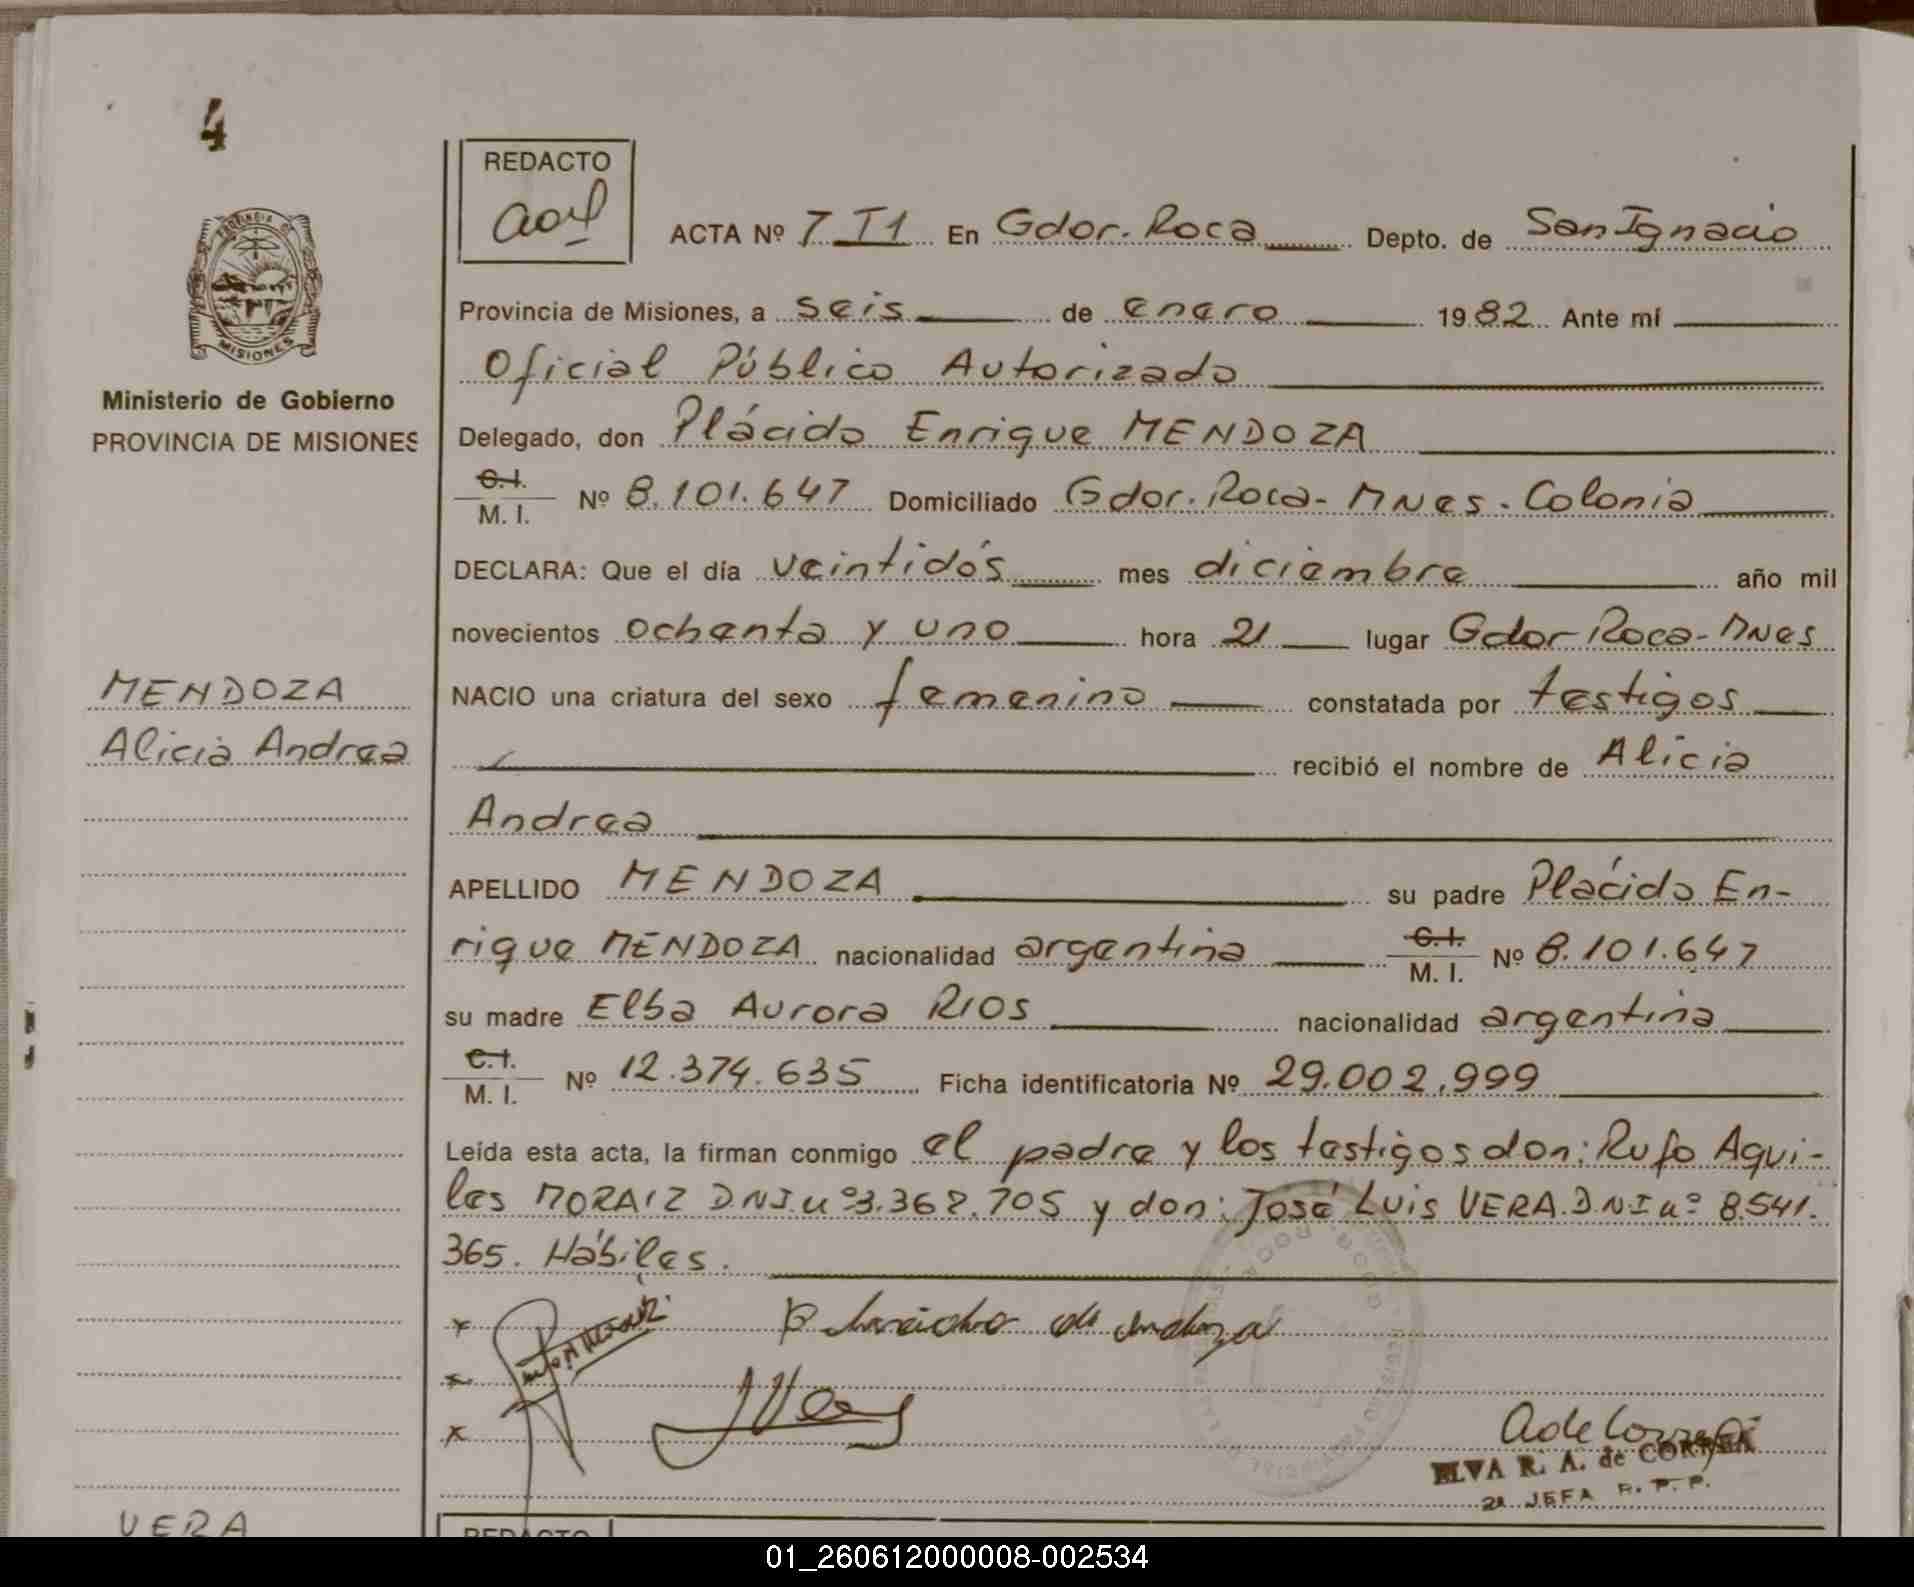 4
PROVINCIA DE
MISIONES
Ministerio de Gobierno
PROVINCIA DE MISIONES
MENDOZA
Alicia Andrea
VERA
REDACTO
ACTA Nº 7 T1 En Gdor. Roca Depto. de San Ignacio
Provincia de Misiones, a seis de enero 1982 Ante mí
Oficial Público Autorizado
Delegado, don Plácido Enrique MENDOZA
C.I.
M. I. Nº 8.101.647 Domiciliado Gdor. Roca- MNes. Colonia
DECLARA: Que el día veintidós mes diciembre año mil
novecientos ochenta y uno hora 21 lugar Gdor Roca-MNes
NACIO una criatura del sexo femenino constatada por testigos
recibió el nombre de Alicia
Andrea
APELLIDO MENDOZA su padre Plácido En-
rique MENDOZA nacionalidad argentina C.I. M. I. Nº 8.101.647
su madre Elba Aurora RIOS nacionalidad argentina
C.I.
M. I. Nº 12.374.635 Ficha identificatoria Nº 29.002.999
Leída esta acta, la firman conmigo el padre y los testigos don: Rufo Aqui-
les MORAIZ D.N.I. nº 3.368.705 y don: José Luis VERA D.N.I nº 8.541.
365. Hábiles.
x
x
x
ELVA R. A. de CORREA
2a JEFA R. P. P.
REDACTO
01_260612000008-002534